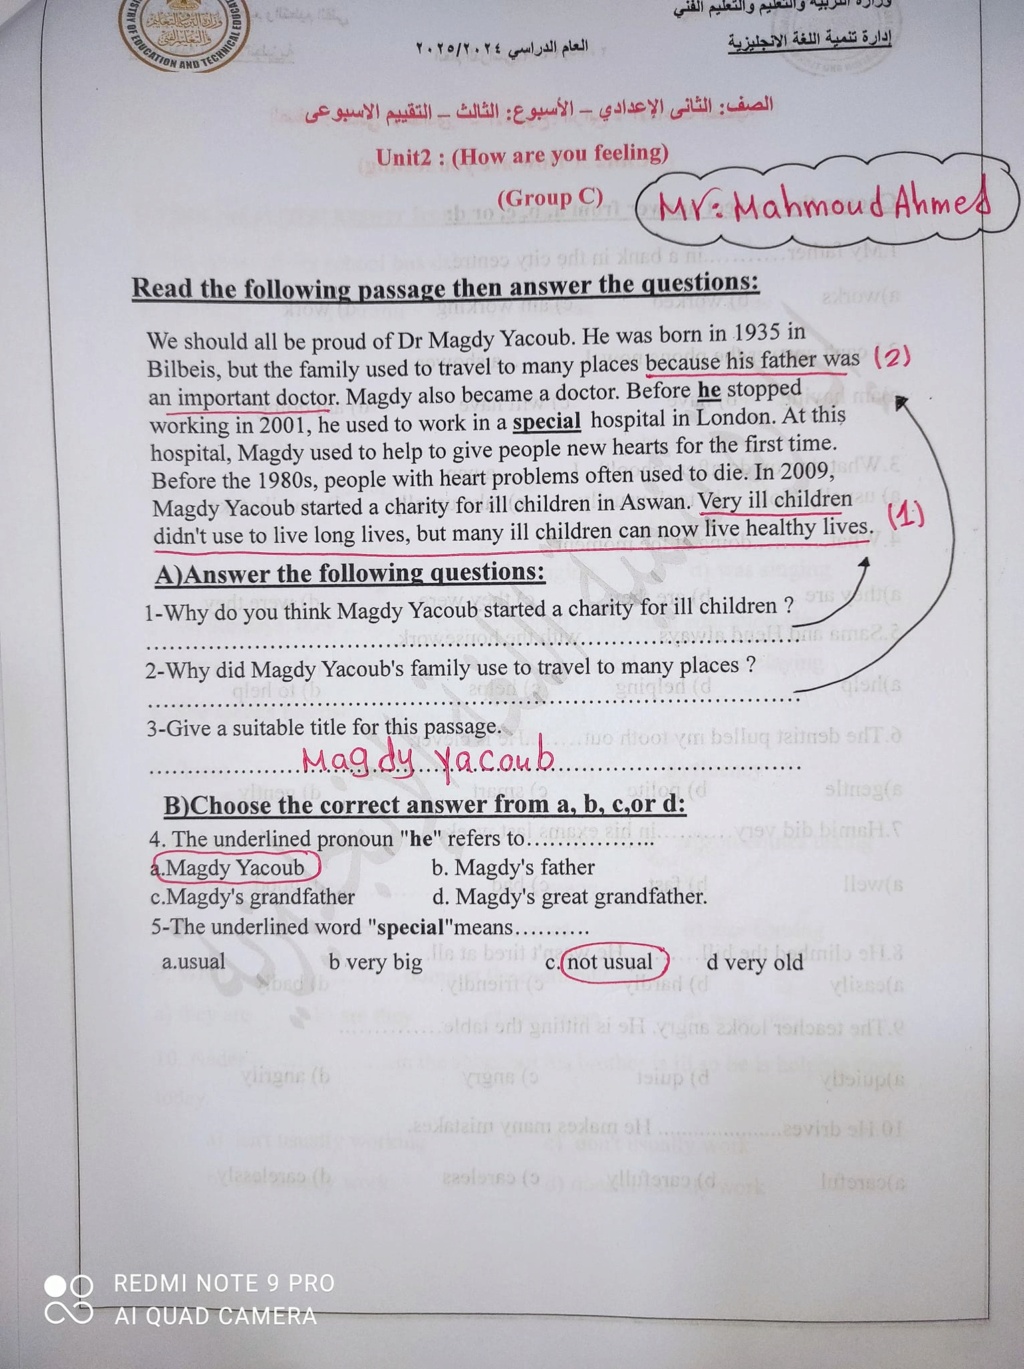 وزارة التربية والتعليم والتعليم الفني
إدارة تنمية اللغة الانجليزية
العام الدراسي ٢٠٢٥/٢٠٢٤
OF EDUCATION AND TECHNICAL
الصف: الثانى الإعدادي – الأسبوع: الثالث – التقييم الاسبوعى
Unit2 : (How are you feeling)
(Group C)
Mr: Mahmoud Ahmed
Read the following passage then answer the questions:
We should all be proud of Dr Magdy Yacoub. He was born in 1935 in
Bilbeis, but the family used to travel to many places because his father was (2)
an important doctor. Magdy also became a doctor. Before he stopped
working in 2001, he used to work in a special hospital in London. At this
hospital, Magdy used to help to give people new hearts for the first time.
Before the 1980s, people with heart problems often used to die. In 2009,
Magdy Yacoub started a charity for ill children in Aswan. Very ill children
didn't use to live long lives, but many ill children can now live healthy lives. (1)
A)Answer the following questions:
1-Why do you think Magdy Yacoub started a charity for ill children ?
2-Why did Magdy Yacoub's family use to travel to many places ?
3-Give a suitable title for this passage.
Magdy yacoub
B)Choose the correct answer from a, b, c,or d:
4. The underlined pronoun "he" refers to.................
a.Magdy Yacoub b. Magdy's father
c.Magdy's grandfather d. Magdy's great grandfather.
5-The underlined word "special"means..........
a.usual b very big c. not usual d very old
REDMI NOTE 9 PRO
AI QUAD CAMERA